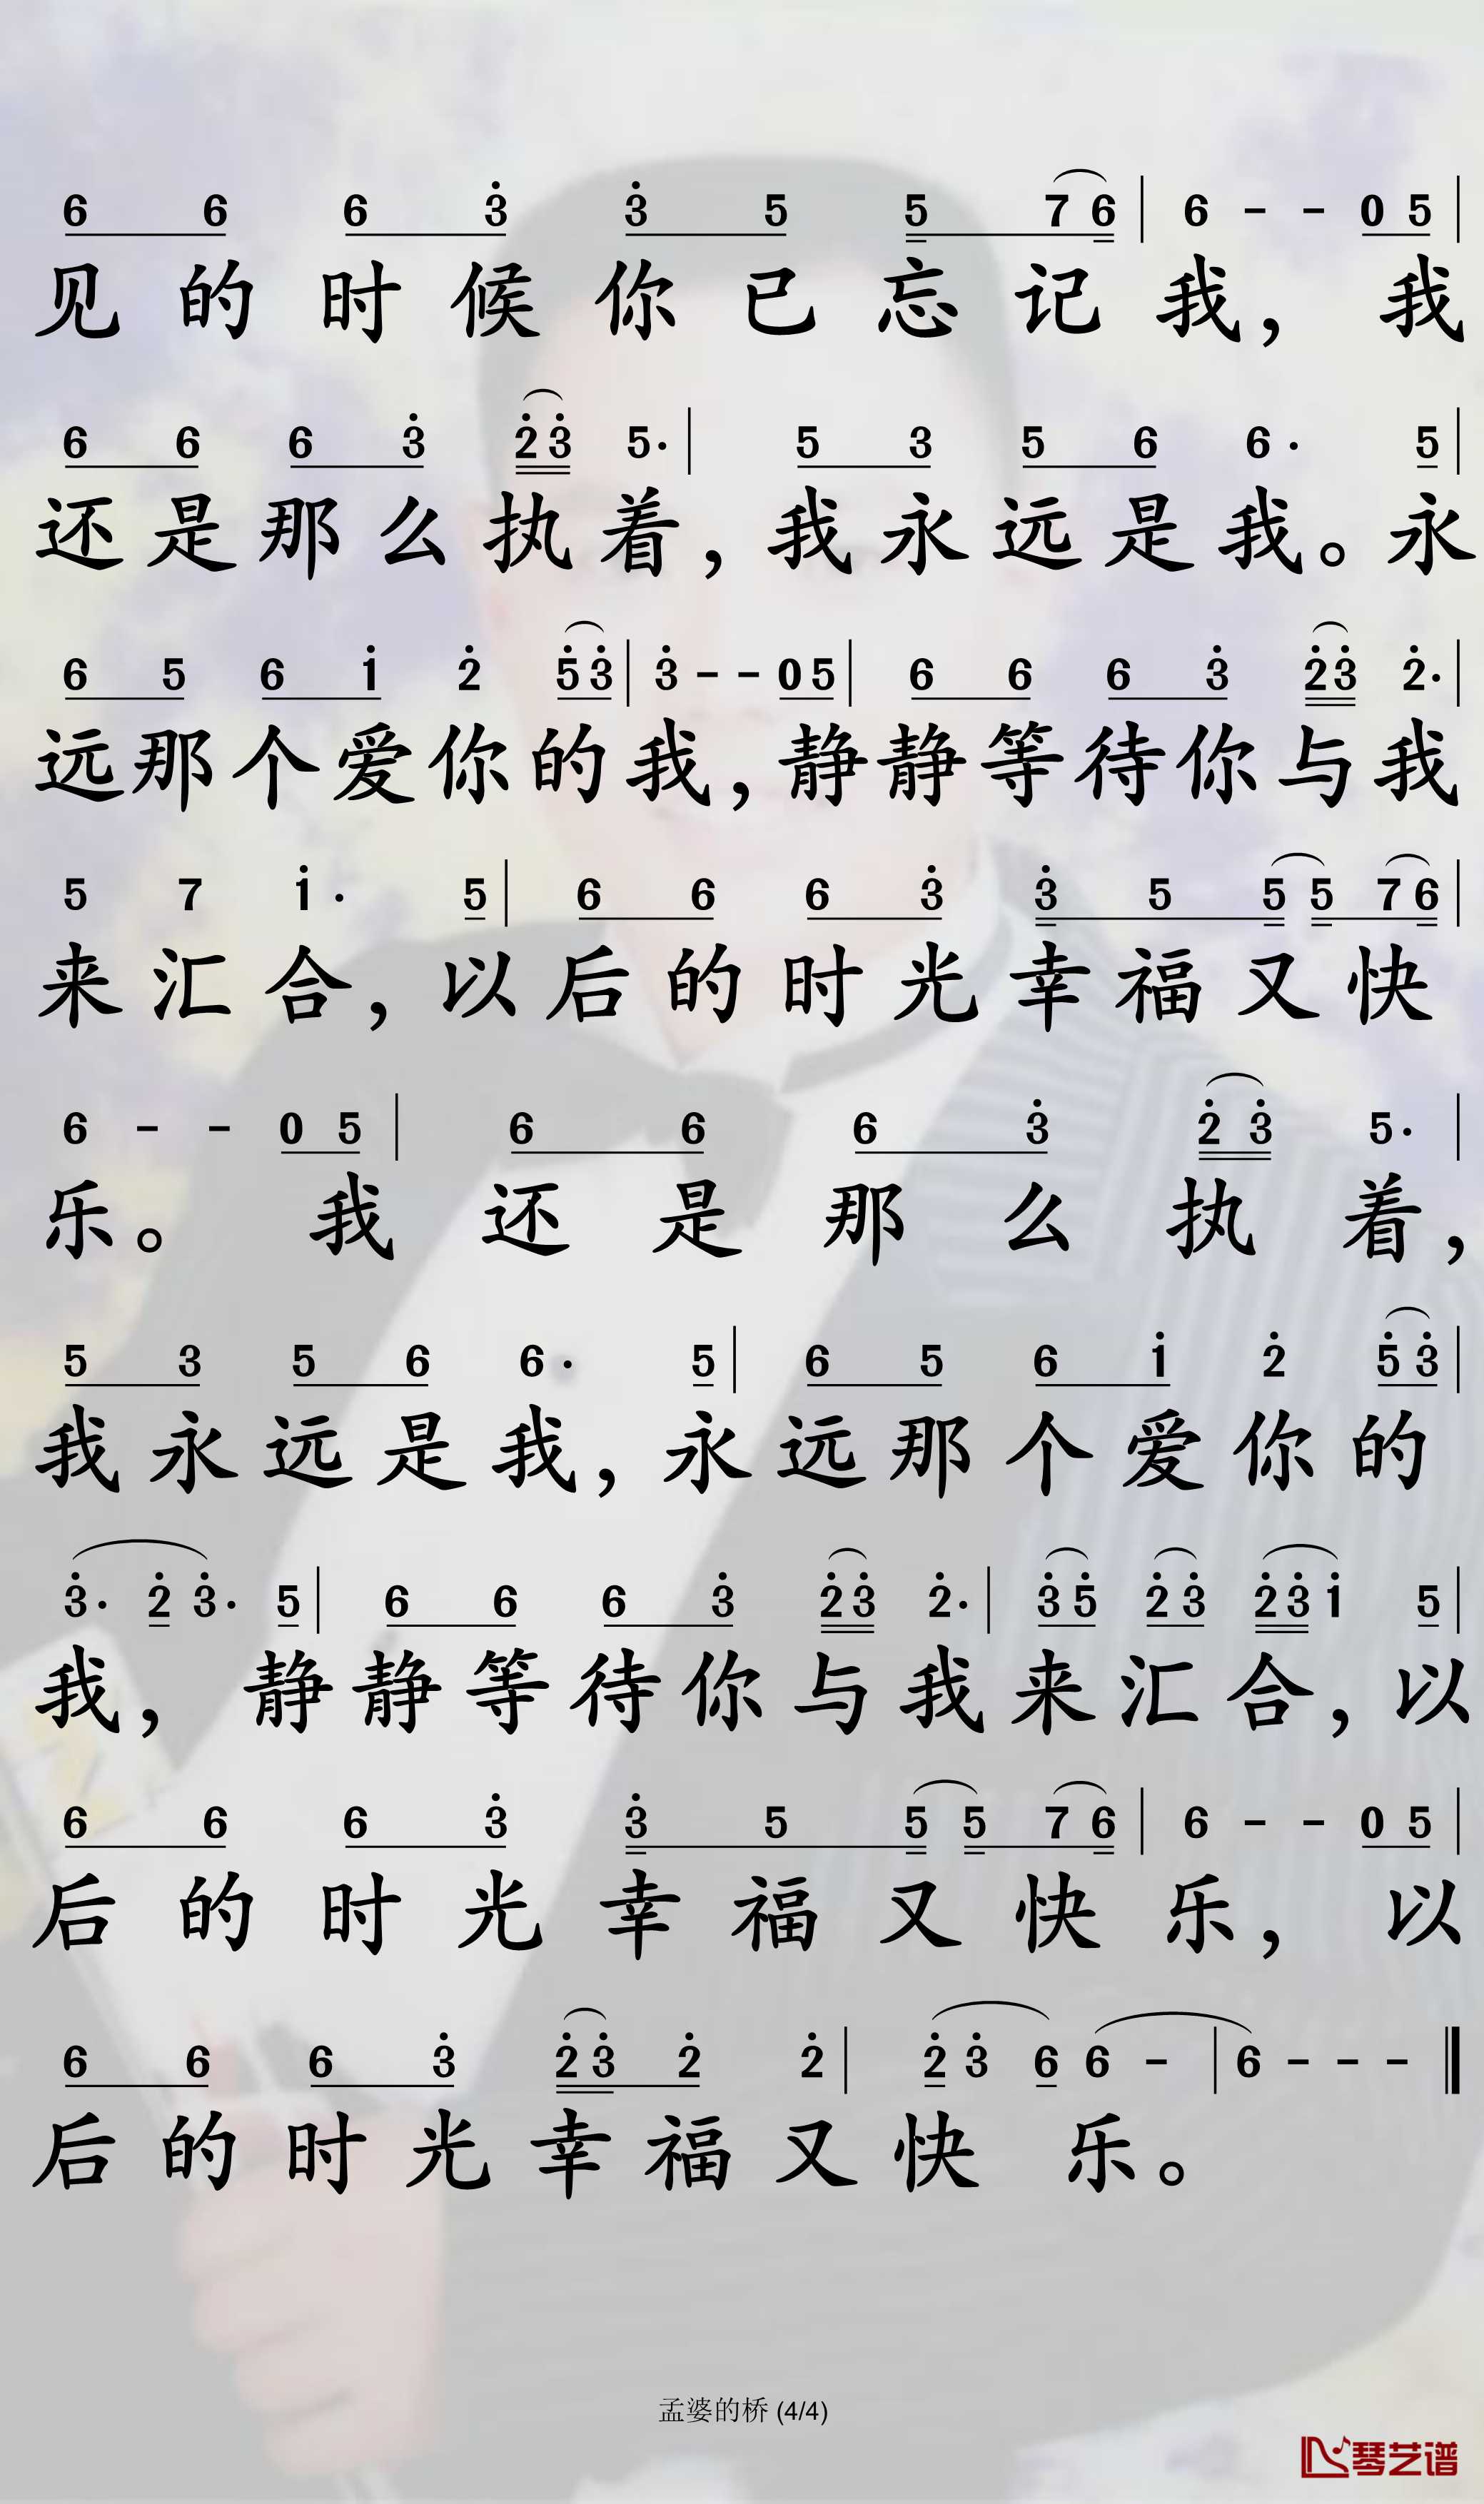 6 6 6 3 3 5 5 7 6 | 6 - - 0 5 |
见的时候你已忘记我，我
6 6 6 3 2 3 5· | 5 3 5 6 6· 5 |
还是那么执着，我永远是我。永
6 5 6 1 2 5 3 | 3 - - 0 5 | 6 6 6 3 2 3 2· |
远那个爱你的我，静静等待你与我
5 7 1· 5 | 6 6 6 3 3 5 5 5 7 6 |
来汇合，以后的时光幸福又快
6 - - 0 5 | 6 6 6 3 2 3 5· |
乐。我还是那么执着，
5 3 5 6 6· 5 | 6 5 6 1 2 5 3 |
我永远是我，永远那个爱你的
3· 2 3· 5 | 6 6 6 3 2 3 2· | 3 5 2 3 2 3 1 5 |
我，静静等待你与我来汇合，以
6 6 6 3 3 5 5 5 7 6 | 6 - - 0 5 |
后的时光幸福又快乐，以
6 6 6 3 2 3 2 2 | 2 3 6 6 - | 6 - - - ‖
后的时光幸福又快乐。
孟婆的桥 (4/4)
琴艺谱